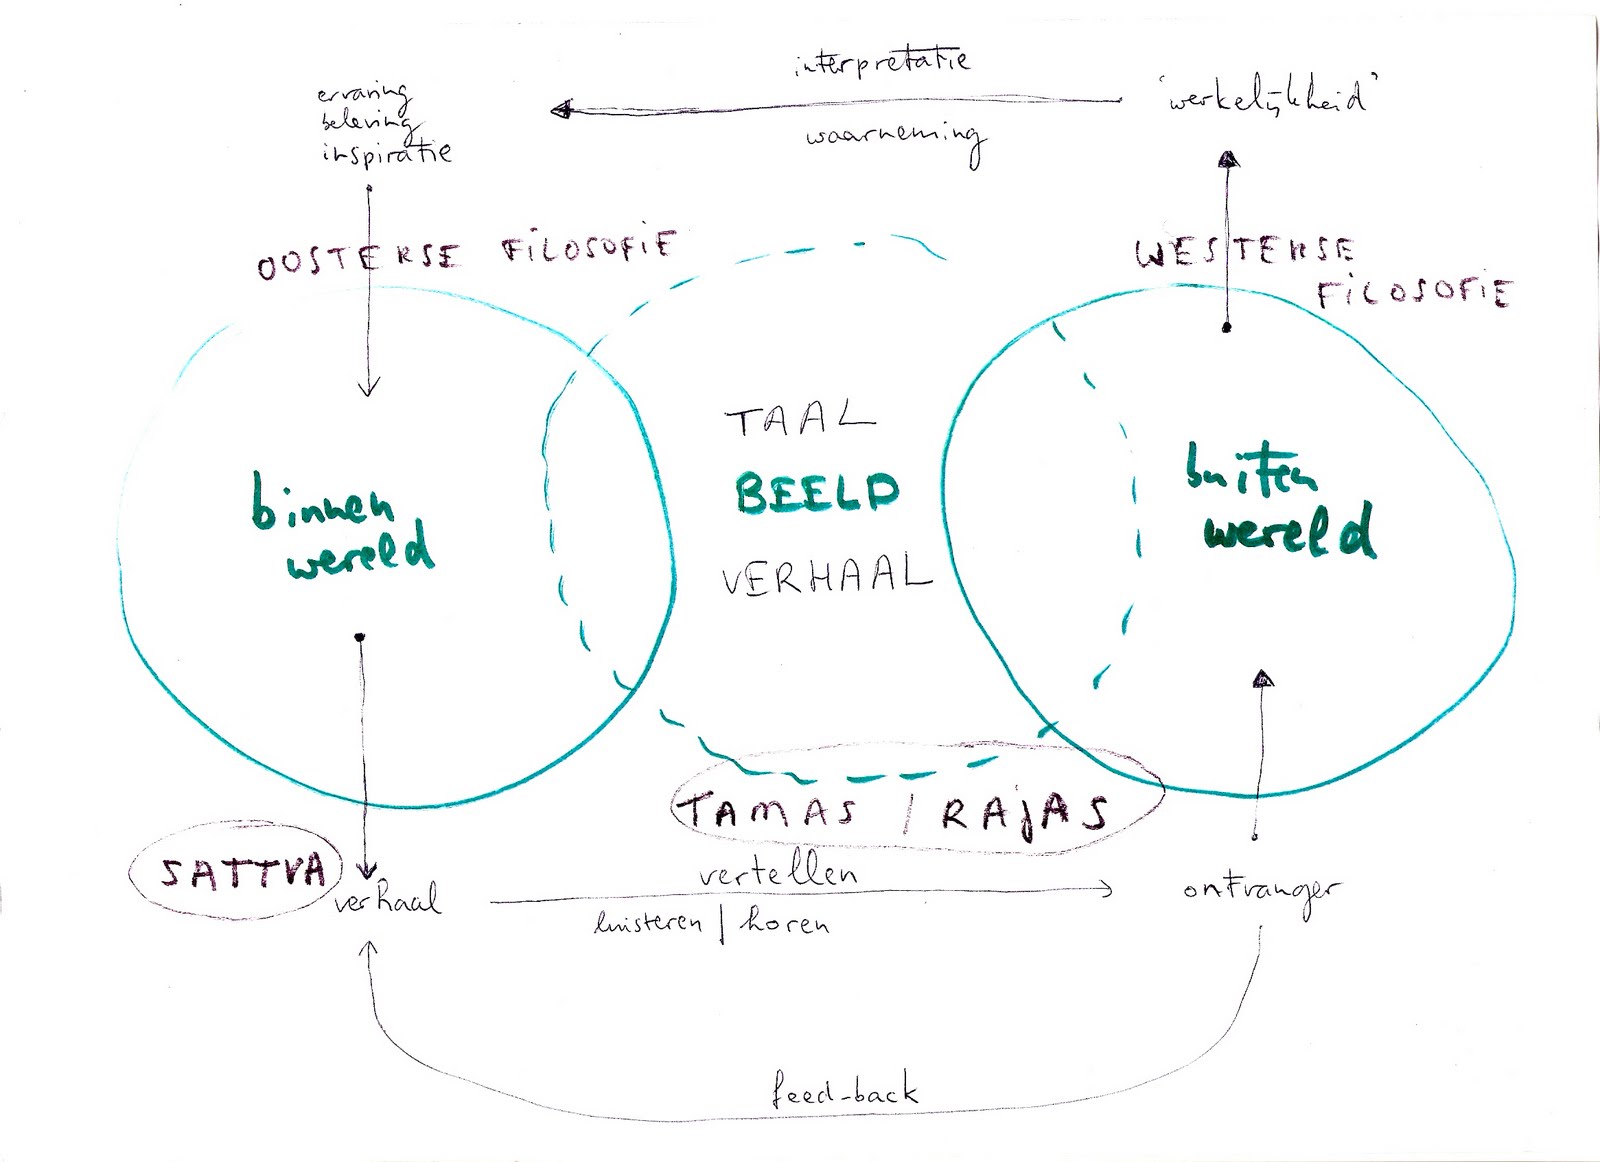 interpretatie
'werkelijkheid'
waarneming
ervaring
beleving
inspiratie
OOSTERSE FiLOSOFiE
WESTERSE
FiLOSOFiE
TAAL
BEELD
VERHAAL
binnen
wereld
buiten
wereld
TAMAS / RAjAS
SATTVA
verhaal
vertellen
luisteren | horen
ontvanger
feed-back